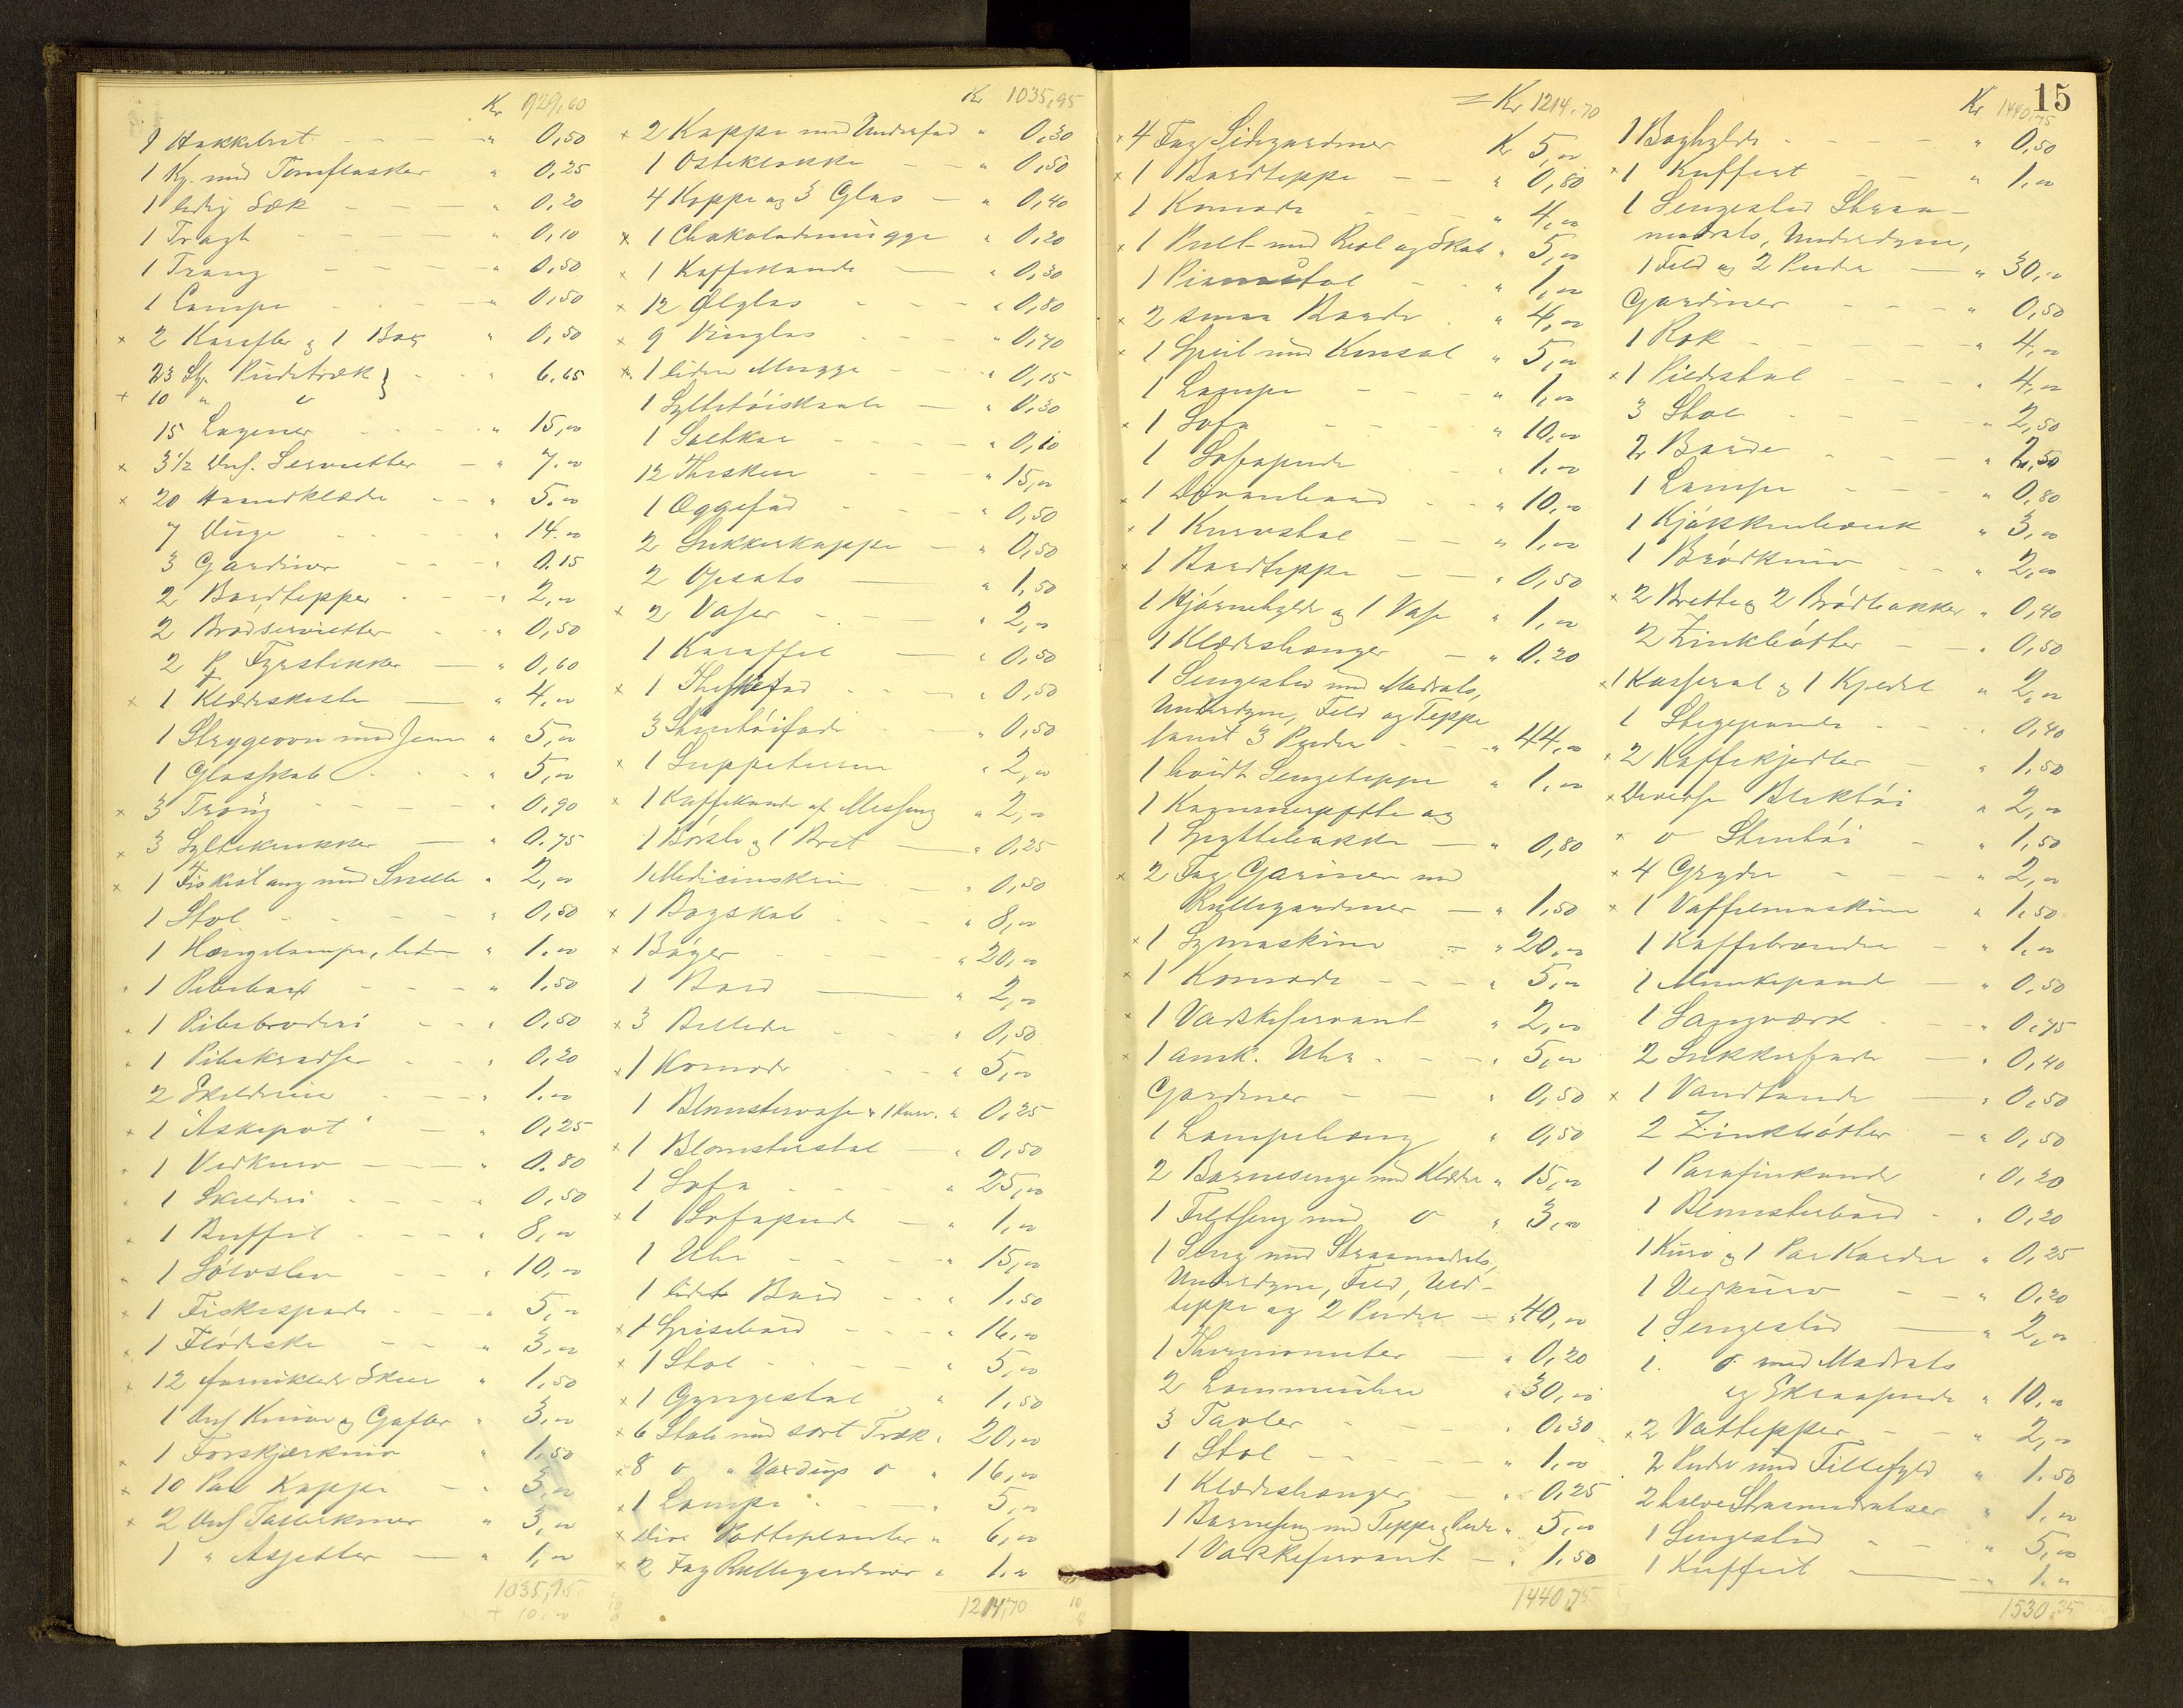 Kr 929,60
1 Hakkebret - - - " 0,50
1 Kg. med Tomflasker " 0,25
1 ledig Sæk - - - " 0,20
1 Tragt - - - - " 0,10
1 Traug - - - - " 0,50
1 Lampe - - - - " 0,50
x 2 Karafler & 1 Bæg " 0,50
23 Stk. Pudetræk } - " 6.65
+ 10 " "
15 Lagener - - - " 15,00
x 3 1/2 Dus. Servietter - " 7.00
x 20 Haandklæde - - " 5.00
7 Duge - - - " 14.00
3 Gardiner - - - " 0.15
2 Bordtepper - - " 2,00
2 Brødservietter - " 0,50
2 Fyrstikker - " 0,60
x 1 Klædeskiste - " 4,00
1 Strygeovn med Jern " 5,00
1 Glasskab - - - " 5,00
x 3 Traug - - - - " 0,90
x 3 Syltekrukker - " 0.75
x 1 Fiskestang med Snelle " 2,00
1 Stol - - - - " 0,50
1 Hængelampe, liden " 1.00
x 1 Pibebord - - - " 1,50
x 1 Pibebroderi - - " 0,50
x 1 Pibekradser - - " 0,20
2 Skilderier - - - " 1.00
x 1 "Askepot" - " 0,25
x 1 Vedkurv - - - " 0.80
x 1 Skilderi - - - " 0,50
x 1 Buffet - - - " 8,00
x 1 Sølvslev - - - " 10,00
x 1 Fiskespade - - " 5,00
x 1 Flødeske - - - " 3,00
x 12 forniklede Skeer " 1,50
1 Dus Knive & Gafler " 3,00
x 1 Forskjærkniv " 1,50
x 10 Par Kopper - - " 3,00
x 2 Dus Tallerkener " 3,00
1 " Asjetter - " 1,00
1035,95
+ 10,00
Kr 1035,95
x 2 Koppe med Underfad " 0,30
1 Osteklokke - - " 0,50
4 Koppe og 3 Glas - " 0,40
x 1 Chokolademugge " 0,20
x 1 Kaffekande - " 0,30
x 12 Ølglas - - - " 0,80
x 9 Vinglas - - - " 0,70
x 1 liden Mugge - - " 0,15
1 Syltetøiskaal - " 0,30
1 Saltkar - - - " 0,10
12 Theskeer - - - " 15,00
1 Æggefad - - - " 0,50
2 Sukkerkoppe - " 0,50
2 Opsats - " 1,50
x 2 Vaser - - - " 2,00
1 Karaffel - " 0,50
x 1 Fad - - " 0,50
3 Stentøifade - - " 0,50
x 1 Suppeterrin " 2,00
x 1 Kaffekande af Messing " 2,00
1 Børste & 1 Bret - " 0,25
1 Medicinskrin - " 0,50
x 1 Bogskab - - - " 8,00
x Bøger - - - - " 20,00
1 Bord - " 2,00
x 3 Billeder - - - " 0,50
x 1 Komode - - - " 5,00
1 Blomstervase & 1 Kurv. " 0,25
x 1 Blomsterstol - " 0,50
1 Sofa - - - - " 25,00
x 1 Sofapude - " 1,00
1 Uhr - - - - " 15,00
1 lidet Bord - - " 1,50
x 1 Spisebord - - - " 16,00
x 1 Stol - - - - " 5,00
x 1 Gyngestol " 1,50
x 6 Stole med sort Træk " 20,00
x 8 " " Voxdugs " " 16,00
x 1 Lampe - - " 5,00
x Div Potteplanter " 6,00
x 2 Fag Rullegardiner " 1.00
1214,70
= Kr 1214,70
x 4 Fag Sidegardiner Kr 5,00
x 1 Bordteppe - - " 0,80
1 Komode - - - " 4,00
x 1 Pult med Reol og Skab " 5,00
1 Pianostol - - " 1,00
x 2 smaa Borde - " 4,00
x 1 Speil med Konsol " 5,00
1 Lampe - - - " 1,00
x 1 Sofa - - - " 10,00
1 Sofapude - - " 1.00
x 1 Divanbord - - " 10,00
x 1 Kurvstol - - " 1,00
x 1 Bordteppe - - " 0,50
1 Hjørnehylde & 1 Vase " 1,00
1 Klædeshænger - " 0.20
1 Sengested med Madrats,
Underdyne, Feld og Teppe
samt 3 Puder - - " 44,00
1 hvidt Sengeteppe " 1,00
1 Kammerpotte og
1 Spyttebakke - " 0,80
x 2 Fag Gardiner med
Rullegardiner - " 1,50
x 1 Symaskine - " 20,00
x 1 Komode - - - " 5,00
x 1 Vaskeservant " 2,00
x 1 amk. Uhr - - - " 5,00
Gardiner - - " 0,50
1 Lampehæng " 0,50
2 Barnesenge med Klæder " 15,00
1 Feltseng med " " 3,00
1 Seng med Straamadrats,
Underdyne, Feld, Uld-
teppe og 2 Puder - " 40,00
1 Thermometer - " 0,20
2 Lommeuhre " 30,00
3 Tavler - - - " 0.30
1 Stol - - - - " 1,00
1 Klædeshænger - " 0,25
1 Barneseng med Teppe & Pude " 5,00
1 Vaskeservant - " 1,50
1440,75
15
Kr 1440,75
1 Boghylde - - - - " 0,50
x 1 Kuffert - - " 1,00
1 Sengested Straa-
madrats, Underdyne,
1 Feld og 2 Puder - " 30,00
Gardiner - - - " 0,50
1 Rok - - - - " 4,00
x 1 Piedestal - - - " 4,00
3 Stole - - - - " 2,50
2 Borde - - - " 2,50
1 Lampe - - - " 0,80
1 Kjøkkenbænk " 3,00
1 Brødkniv - - " 2,00
x 2 Brette & 2 Brødbakker " 0,40
2 Zinkbøtter - - " 0,50
x 1 Kasserol & 1 Kjedel " 2,00
1 Stegepande - - " 0,40
x 2 Kaffekjedler - " 1,50
x Diverse Bliktøi " 2,00
x " Stentøi - " 1,50
x 4 Gryder - - - " 2,00
x 1 Vaffelmaskine " 1,50
1 Kaffebrænder - " 1,00
1 Munkepande - " 0,50
1 Langvard - - " 0,75
2 Sukkerfade - " 0,40
x 1 Vandtønde - " 0,50
2 Zinkbøtter - " 0,50
1 Parafinkande " 0,20
1 Blomsterbord - " 0,20
1 Kurv & 1 Par Karder " 0,25
1 Vedkurv - - " 0,20
1 Sengested - " 2,00
1 " med Madrats
og Skraapude " 10,00
x 2 Vattepper - - " 2,00
2 Puder med Fillefyld " 1.50
2 halve Straamadratser " 1,00
1 Sengested - - " 5,00
1 Kuffert - " 1.00
1530,35